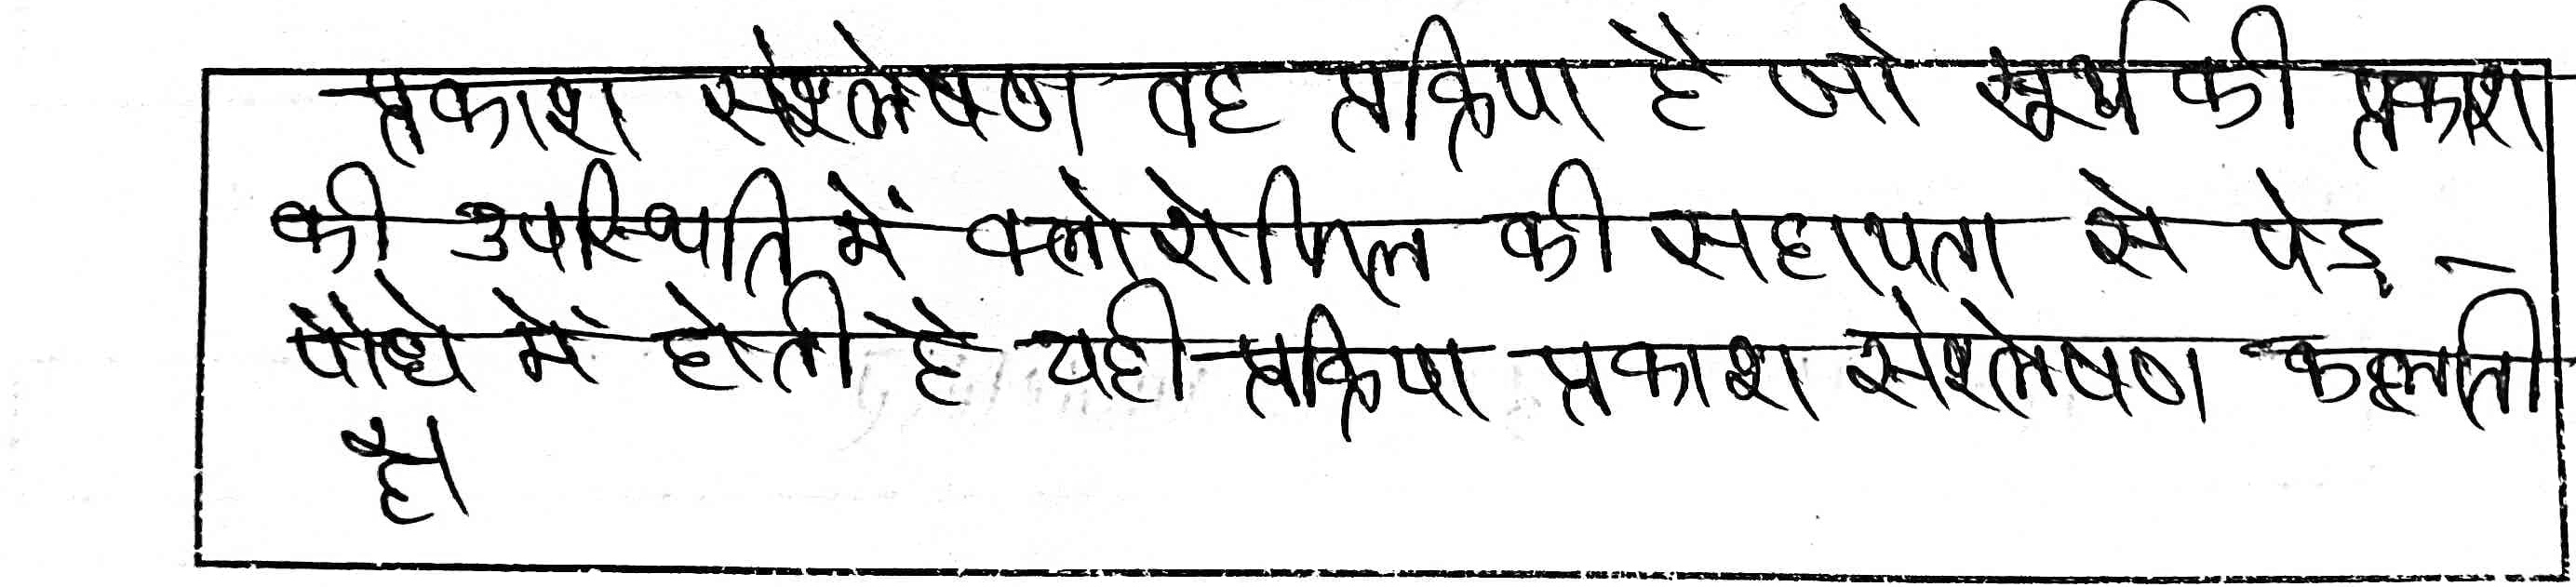 प्रकाश संश्लेषण वह प्रक्रिया है जो सूर्य की प्रकाश
की उपस्थिति में क्लोरोफिल की सहायता से पेड़ -
पौधे में होती है यही प्रक्रिया प्रकाश संश्लेषण कहलाती
है।